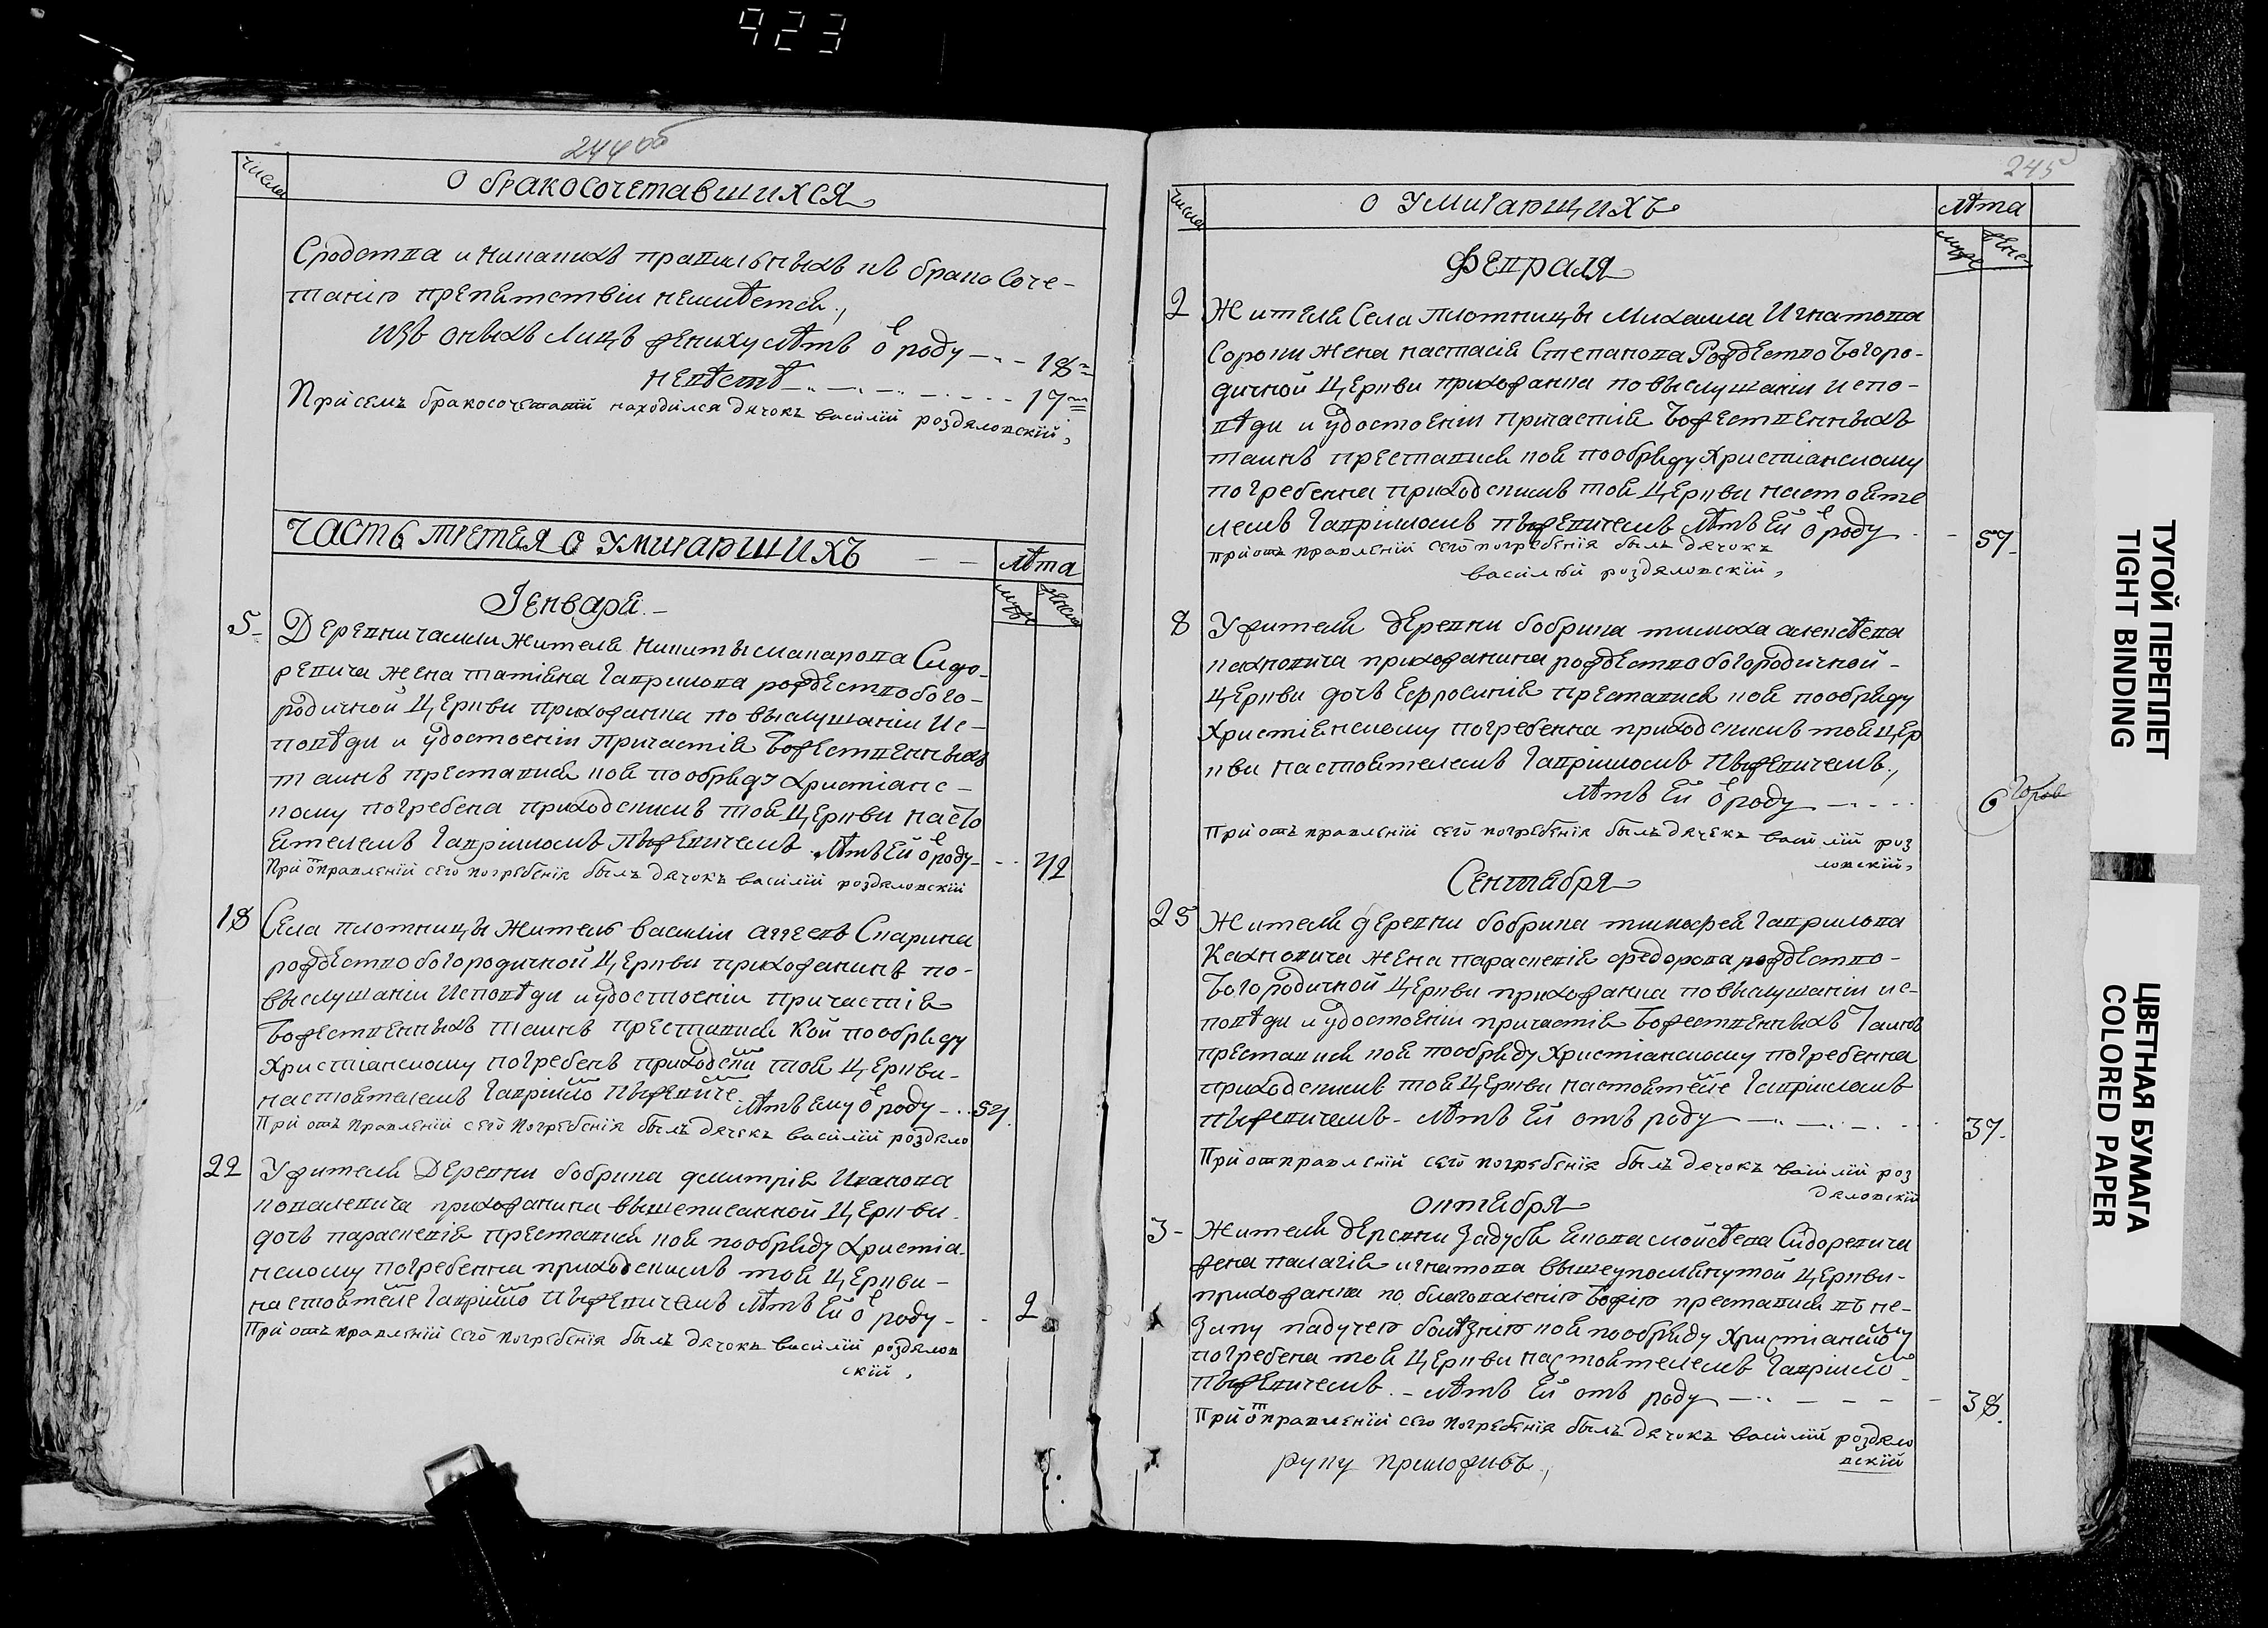 923
244 об
числа
О бракосочетавшихся
Сродства и никакихъ правильныхъ къ бракосоче-
танію препятствіи неимѣется,
изъ оныхъ лицъ жениху лѣтъ о̃ роду - - - 18
невѣстѣ - - - 17
При семъ бракосочетаній находился дячокъ василій роздяловскій,
Часть третея о умирающихъ
лѣта
муже
женск
Генваря
5
Деревни жителя Никиты макарова Сидо-
ревича жена татіяна гаврилова рождество бого-
родичной церкви прихожанка по выслушаніи Ис-
повѣди и удостоеніи Причастія Божественныхъ
таинъ преставися коя по обряду христіанс-
кому погребена приходскимъ тоя церкви насто
ятелемъ Гавріиломъ Пыжевичемъ лѣтъ Ей о̃ роду -
42
При отправленій сего погребенія былъ дячокъ василій роздяловскій
18
Села плотницы житель василій Спарина
рождество богородичной церкви прихожанинъ по-
выслушаніи Исповѣди и удостоеніи причастія
Божественныхъ таинъ преставися кой по обряду
христіанскому погребенъ приходски тоя церкви-
настоятелемъ Гавріило Пыжевиче лѣтъ ему о̃ роду -
54
При отъ правленій сего погребенія былъ дячекъ василій роздяло
22
У жителя Деревни бобрика дмитрія Иванова
ковалевича прихожанина вышеписанной церкви
дочь параскевія преставися коя по обряду христіа
нскому погребенна приходскимъ тоя церкви-
настоятеле Гавріило Пыжевичемъ лѣтъ Ей о̃ роду -
2
При отъ правленій сего погребенія былъ дячокъ василій роздялов
скій,
245
числа
О умирающихъ
лѣта
муже
жене
Февраля
2
Жителя Села плотницы Михаила Игнатова
Сороки жена настасія Степанова Рождество Богоро-
дичной церкви прихожанка по выслушаніи испо-
вѣди и удостоеніи причастія Божественныхъ
таинъ преставися коя по обряду христіанскому
погребенна приходскимъ тоя церкви настояте
лемъ Гавріиломъ пыжевичемъ лѣтъ Ей о̃ роду
57
При отъ правленій сего погребенія былъ дячокъ
василій роздяловскій,
8
У жителя деревни бобрика тимоха алексѣева
кахновича прихожанина рождество богородичной-
церкви дочь Ефросинія преставися коя по обряду
христіянскому погребенна приходскимъ тоя цер
кви настоятелемъ Гавріиломъ Пыжевичемъ,
лѣтъ Ей о̃ роду
6
При отъ правленій сего погребенія былъ дячекъ василій роз
ловскій,
Сентября
25
Жителя деревни бобрика тимофея Гаврилова
Кахновича жена параскевія федорова рождество-
Богородичной церкви прихожанка по выслушаніи ис-
повѣди и удостоеніи причастія Божественныхъ Таинъ
преставися коя по обряду христіанскому погребенна
приходскимъ тоя церкви настоятеле Гавріиломъ
пыжевичемъ- лѣтъ Ей отъ роду
37
При отправленій сего погребенія былъ дячокъ василій роз
дяловскій
октября
3
Жителя деревни Задубя якова моисѣева Сидоревича
жена палагія игнатова вышеупомянутой церкви-
прихожанка по благоволенію Божію преставися въне-
запу падучею болѣзнію коя по обряду христіанскому
погребена тоя церкви настоятелемъ Гавріило
Пыжевичемъ - лѣтъ Ей отъ роду
38
При отправленій сего погребенія былъ дячокъ василій роздяло
вскій
руку приложивъ,
ТУГОЙ ПЕРЕПЛЕТ
TIGHT BINDING
ЦВЕТНАЯ БУМАГА
COLORED PAPER